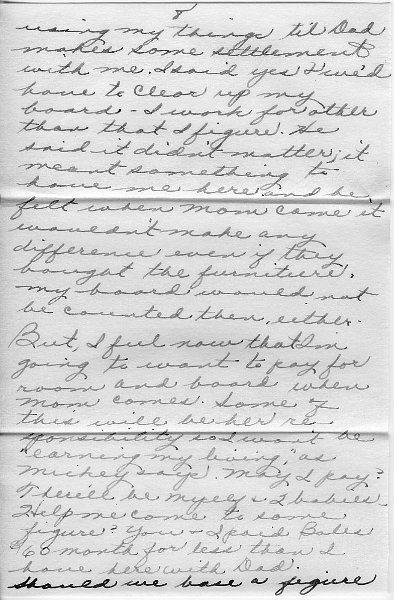 8
using my things til Dad
makes some settlement
with me. I said yes & we'd
have to clear up my
board - I work for other
than that I figure. He
said it didn't matter; it
meant something to
have me here and he
felt when Mom came it
wouldn't make any
difference even if they
bought the furniture,
my board would not
be counted then, either.
But, I feel now that I'm
going to want to pay for
room and board when
Mom comes. Some of
this will be her re
sponsibility so I won't be
"earning my living," as
Mickey says. May I pay?
There'll be myself & 2 babies.
Help me come to some
figure? You & I paid Bales
$60 month for less than I
have here with Dad.
Should we base a figure